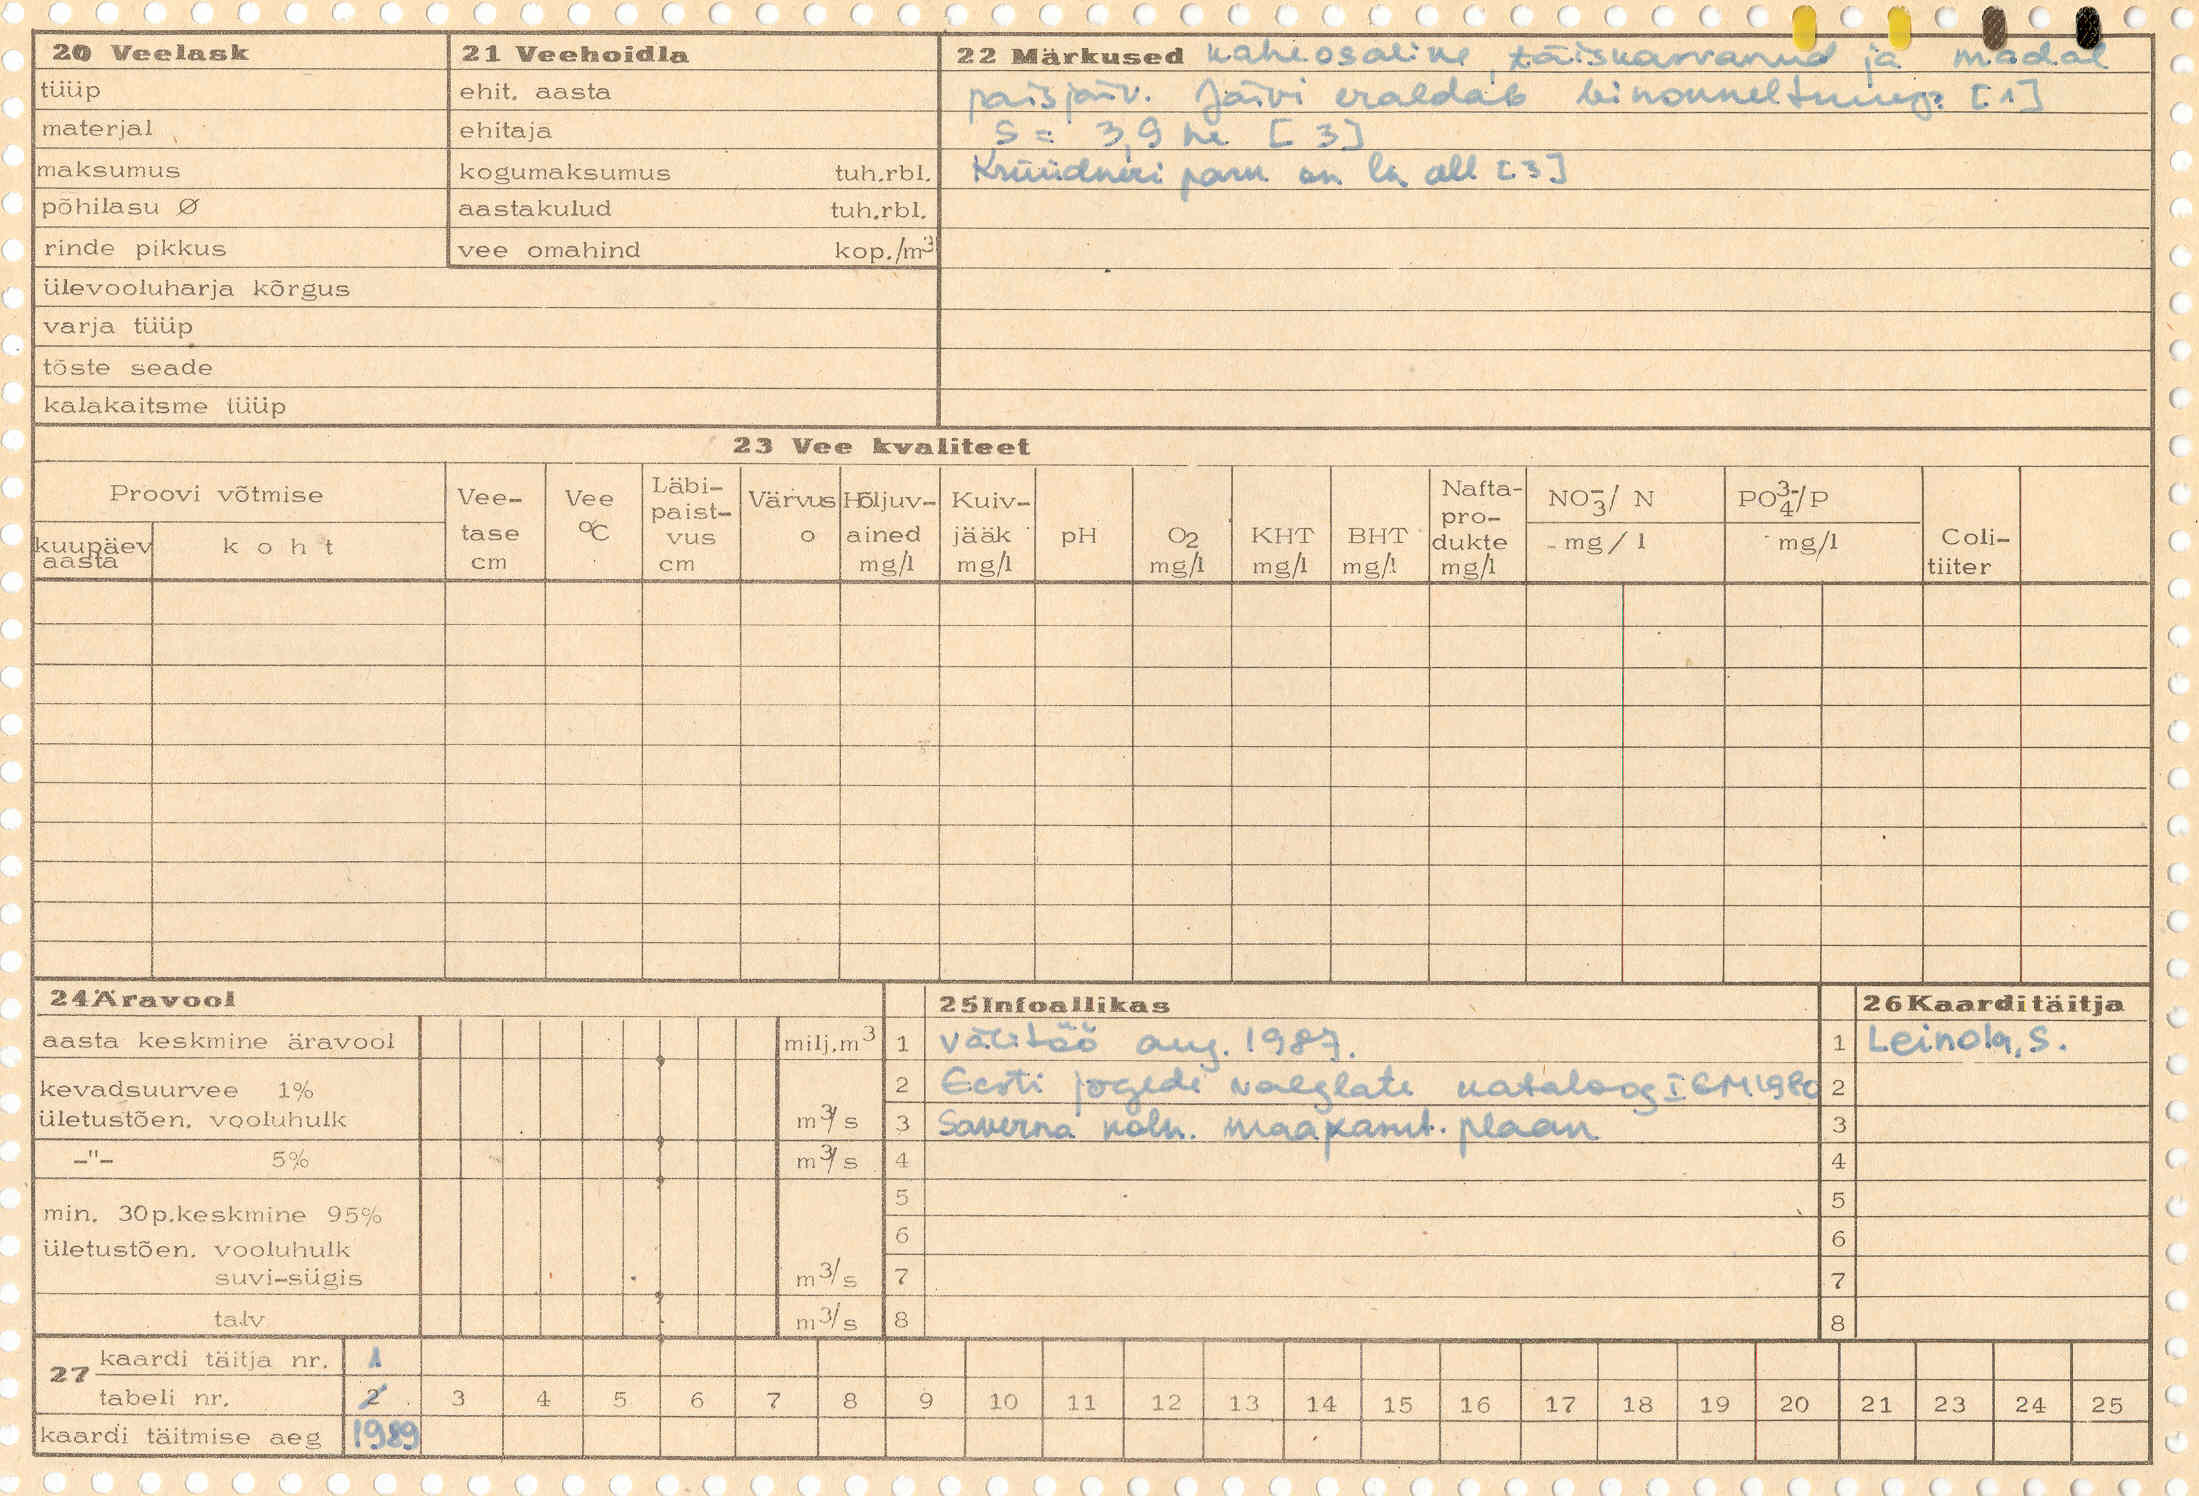 20 Veelask
tüüp
materjal
maksumus
põhilasu Ø
rinde pikkus
ülevooluharja kõrgus
varja tüüp
tõste seade
kalakaitsme tüüp
21 Veehoidla
ehit. aasta
ehitaja
kogumaksumus tuh.rbl.
aastakulud tuh.rbl.
vee omahind kop./m³
22 Märkused kaheosaline, täiskasvanud ja madal
paisjärv. Järvi eraldab [1]
S = 3,9 ha [3]
Krüüdneri park on la all [3]
23 Vee kvaliteet
Proovi võtmise
kuupäev aasta
koht
Vee-tase cm
Vee °C
Läbi-paist-vus cm
Värvus o
Hõljuv-ained mg/l
Kuiv-jääk mg/l
pH
O2 mg/l
KHT mg/l
BHT mg/l
Nafta-pro-dukte mg/l
NO₃⁻/ N mg/l
PO₄³⁻/P mg/l
Coli-tiiter
24 Äravool
aasta keskmine äravool milj.m³
kevadsuurvee 1%
ületustõen. vooluhulk m³/s
-"- 5% m³/s
min. 30p.keskmine 95%
ületustõen. vooluhulk
suvi-sügis m³/s
talv m³/s
25 Infoallikas
1 välitöö aug. 1987.
2 Eesti jõgede valglate kataloog I EM 1980
3 Saverna kolh. maakasut. plaan
4
5
6
7
8
26 Kaarditäitja
1 Leinola, S.
2
3
4
5
6
7
8
27 kaardi täitja nr. 1
tabeli nr. 2 3 4 5 6 7 8 9 10 11 12 13 14 15 16 17 18 19 20 21 23 24 25
kaardi täitmise aeg 1989